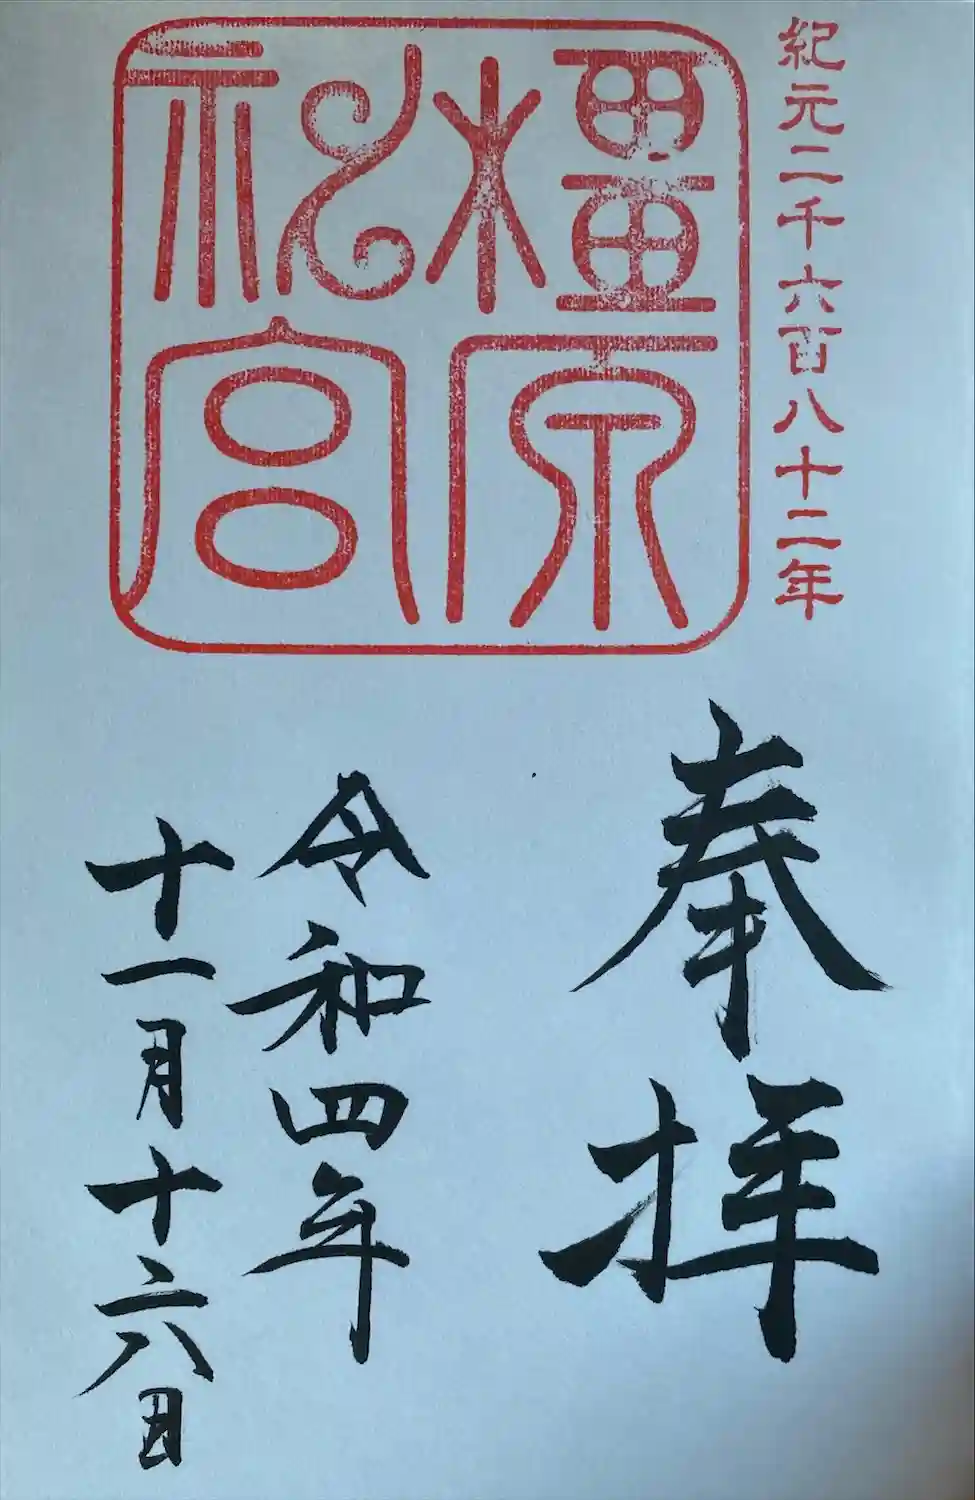 紀元二千六百八十二年
橿原
神宮
奉拝
令和四年
十一月十六日